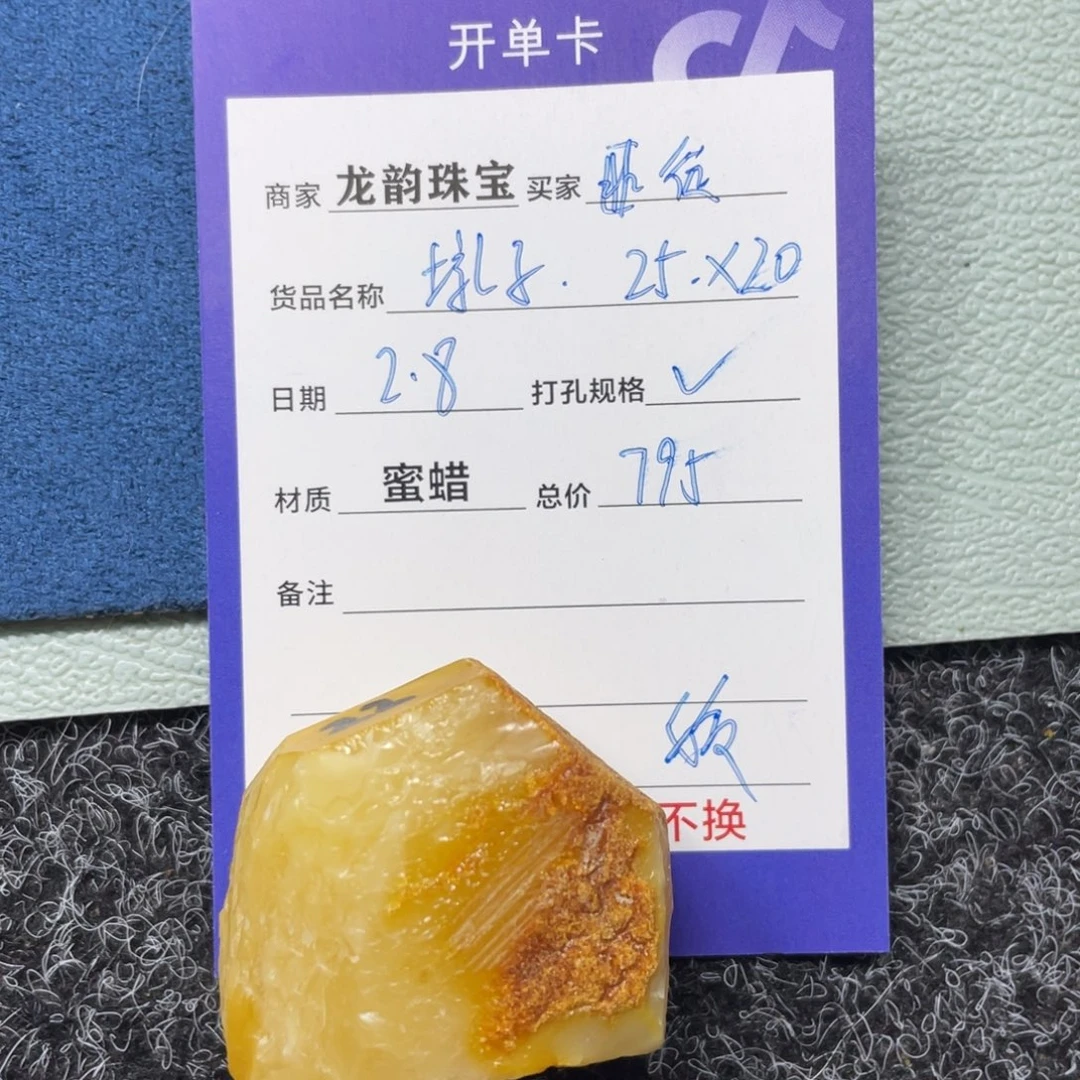 开单卡
商家 龙韵珠宝 买家
货品名称 墩子. 25.X20
日期 2.8 打孔规格 ✓
材质 蜜蜡 总价 795
备注
不换